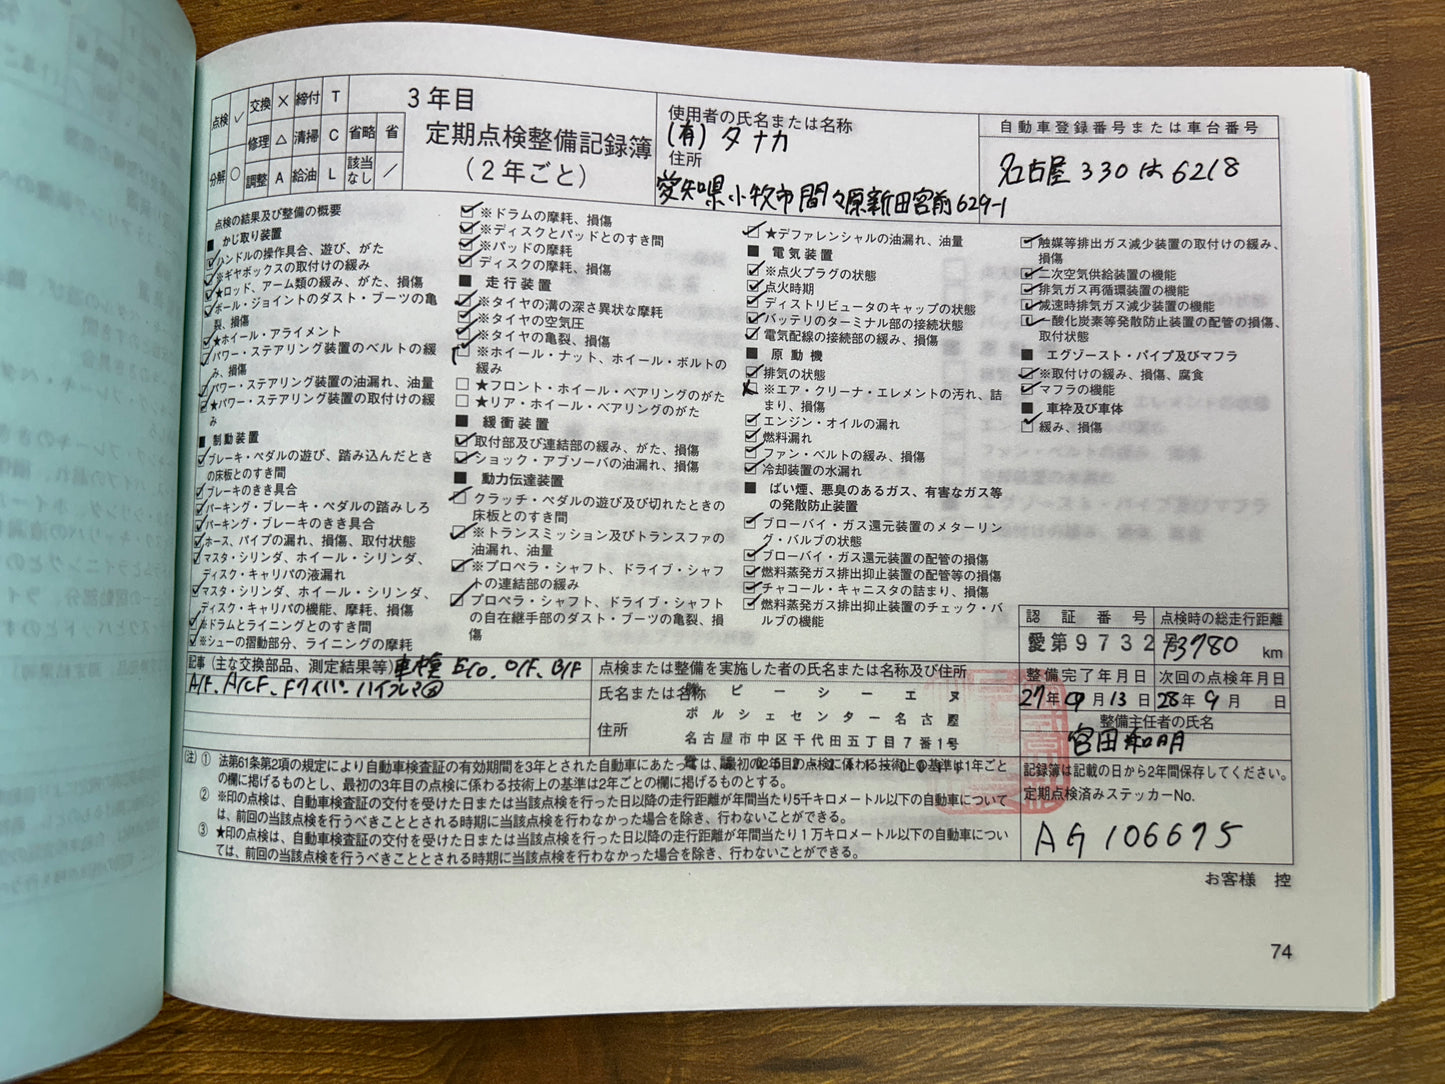 点検 ✓ 交換 × 締付 T
修理 △ 清掃 C 省略 省
分解 ○ 調整 A 給油 L 該当なし ／
3年目
定期点検整備記録簿
(2年ごと)
使用者の氏名または名称
(有) タナカ
住所
愛知県小牧市間々原新田宮前629-1
自動車登録番号または車台番号
名古屋 330 は 6218
点検の結果及び整備の概要
■ かじ取り装置
ハンドルの操作具合、遊び、がた
※ギヤボックスの取付けの緩み
★ロッド、アーム類の緩み、がた、損傷
ボール・ジョイントのダスト・ブーツの亀
裂、損傷
★ホイール・アライメント
パワー・ステアリング装置のベルトの緩
み、損傷
パワー・ステアリング装置の油漏れ、油量
★パワー・ステアリング装置の取付けの緩
み
■ 制動装置
ブレーキ・ペダルの遊び、踏み込んだとき
の床板とのすき間
ブレーキのきき具合
パーキング・ブレーキ・ペダルの踏みしろ
パーキング・ブレーキのきき具合
ホース、パイプの漏れ、損傷、取付状態
マスタ・シリンダ、ホイール・シリンダ、
ディスク・キャリパの液漏れ
マスタ・シリンダ、ホイール・シリンダ、
ディスク・キャリパの機能、摩耗、損傷
※ドラムとライニングとのすき間
※シューの摺動部分、ライニングの摩耗
※ドラムの摩耗、損傷
※ディスクとパッドとのすき間
※パッドの摩耗
ディスクの摩耗、損傷
■ 走行装置
※タイヤの溝の深さ異状な摩耗
※タイヤの空気圧
※タイヤの亀裂、損傷
※ホイール・ナット、ホイール・ボルトの
緩み
★フロント・ホイール・ベアリングのがた
★リア・ホイール・ベアリングのがた
■ 緩衝装置
取付部及び連結部の緩み、がた、損傷
ショック・アブソーバの油漏れ、損傷
■ 動力伝達装置
クラッチ・ペダルの遊び及び切れたときの
床板とのすき間
※トランスミッション及びトランスファの
油漏れ、油量
※プロペラ・シャフト、ドライブ・シャフ
トの連結部の緩み
プロペラ・シャフト、ドライブ・シャフト
の自在継手部のダスト・ブーツの亀裂、損
傷
★デファレンシャルの油漏れ、油量
■ 電気装置
※点火プラグの状態
点火時期
ディストリビュータのキャップの状態
バッテリのターミナル部の接続状態
電気配線の接続部の緩み、損傷
■ 原動機
排気の状態
※エア・クリーナ・エレメントの汚れ、詰
まり、損傷
エンジン・オイルの漏れ
燃料漏れ
ファン・ベルトの緩み、損傷
冷却装置の水漏れ
■ ばい煙、悪臭のあるガス、有害なガス等
の発散防止装置
ブローバイ・ガス還元装置のメターリン
グ・バルブの状態
ブローバイ・ガス還元装置の配管の損傷
燃料蒸発ガス排出抑止装置の配管等の損傷
チャコール・キャニスタの詰まり、損傷
燃料蒸発ガス排出抑止装置のチェック・バ
ルブの機能
触媒等排出ガス減少装置の取付けの緩み、
損傷
二次空気供給装置の機能
排気ガス再循環装置の機能
減速時排気ガス減少装置の機能
一酸化炭素等発散防止装置の配管の損傷、
取付状態
■ エグゾースト・パイプ及びマフラ
※取付けの緩み、損傷、腐食
マフラの機能
■ 車枠及び車体
緩み、損傷
認証番号 点検時の総走行距離
愛第9732号 3780 km
整備完了年月日 次回の点検年月日
27年 9月 13日 28年 9月 日
整備主任者の氏名
宮田和明
記事(主な交換部品、測定結果等) 車検 E/O. O/F. B/F
A/F. A/CF. Fワイパー. ハイフレマ②
点検または整備を実施した者の氏名または名称及び住所
氏名または名称
㈱ピーシーエヌ
ポルシェセンター名古屋
住所
名古屋市中区千代田五丁目7番1号
(注) ① 法第61条第2項の規定により自動車検査証の有効期間を3年とされた自動車にあたっては、最初の2年目の点検に係わる技術上の基準は1年ごと
の欄に掲げるものとし、最初の3年目の点検に係わる技術上の基準は2年ごとの欄に掲げるものとする。
② ※印の点検は、自動車検査証の交付を受けた日または当該点検を行った日以降の走行距離が年間当たり5千キロメートル以下の自動車について
は、前回の当該点検を行うべきこととされる時期に当該点検を行わなかった場合を除き、行わないことができる。
③ ★印の点検は、自動車検査証の交付を受けた日または当該点検を行った日以降の走行距離が年間当たり1万キロメートル以下の自動車につい
ては、前回の当該点検を行うべきこととされる時期に当該点検を行わなかった場合を除き、行わないことができる。
記録簿は記載の日から2年間保存してください。
定期点検済みステッカーNo.
AG 106695
お客様 控
74